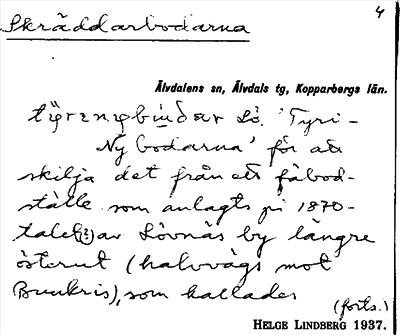 Skräddarbodarna
4
Älvdalens sn, Älvdals tg, Kopparbergs län.
Lö. 'Tyri-
Nybodarna' för att
skilja det från ett fäbod-
ställe som anlagts på 1870-
talet(?) av Lövnäs by längre
österut (halvvägs mot
Bunkris), som kallades
(forts.)
HELGE LINDBERG 1937.